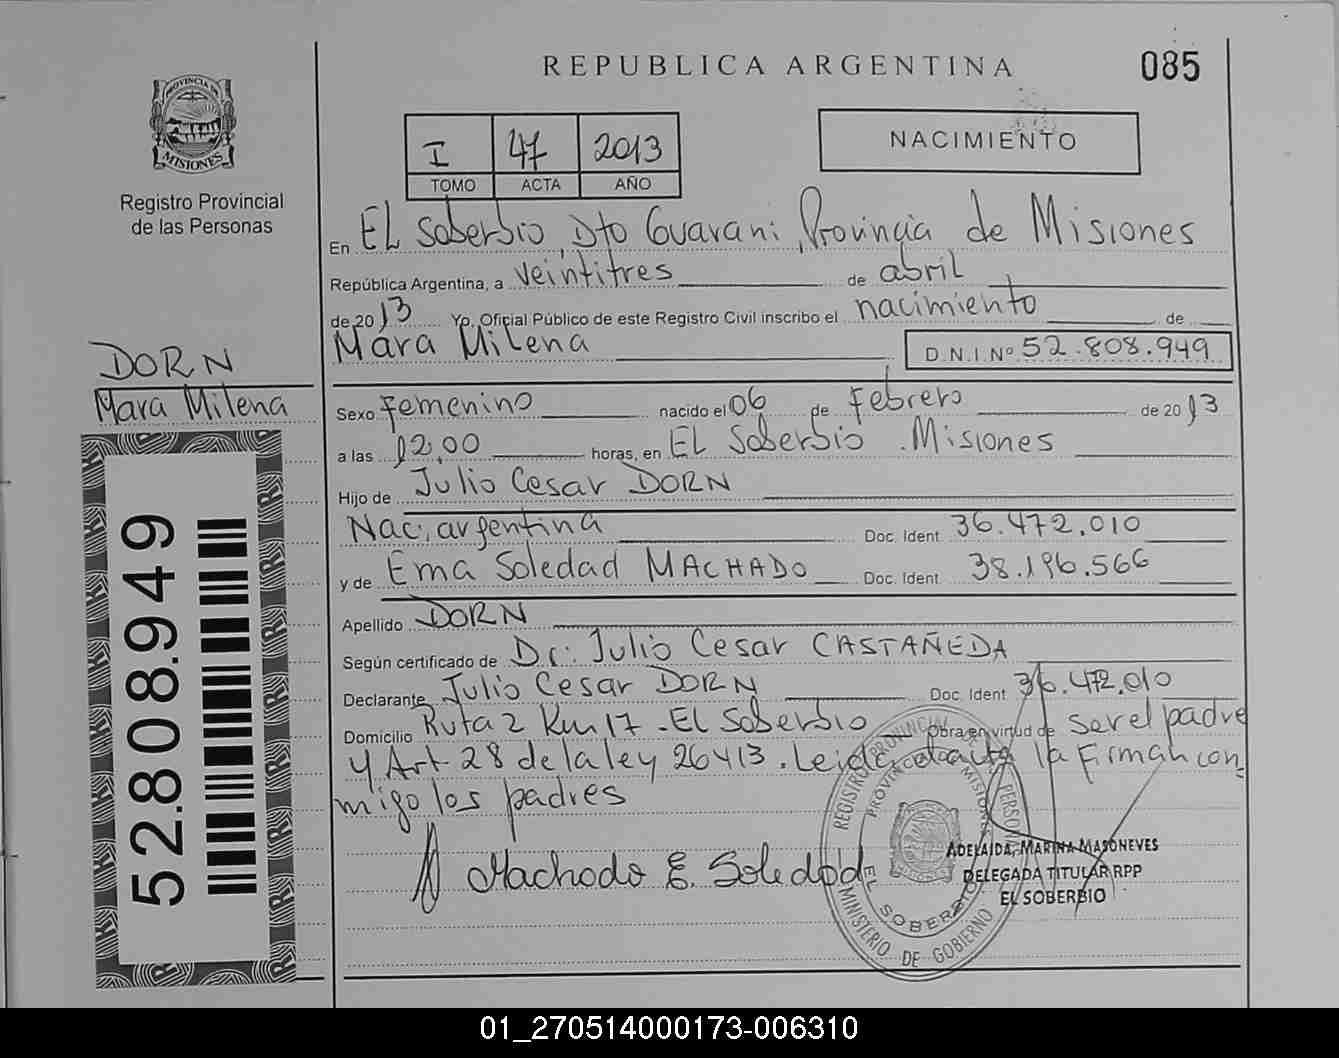 REPUBLICA ARGENTINA
085
PROVINCIA DE
MISIONES
Registro Provincial
de las Personas
I 47 2013
TOMO ACTA AÑO
NACIMIENTO
En EL Soberbio, Dto Guarani, Provincia de Misiones
República Argentina, a veintitres de abril
de 2013 Yo, Oficial Público de este Registro Civil inscribo el nacimiento de
Mara Milena D.N.I.Nº 52.808.949
DORN
Mara Milena
Sexo Femenino nacido el 06 de Febrero de 2013
a las 12,00 horas, en EL Soberbio . Misiones
Hijo de Julio Cesar DORN
Nac: argentina Doc. Ident 36.472.010
y de Ema Soledad MACHADO Doc. Ident. 38.196.566
Apellido DORN
Según certificado de Dr: Julio Cesar CASTAÑEDA
Declarante Julio Cesar DORN Doc. Ident 36.472.010
Domicilio Ruta 2 Km 17 - EL Soberbio Obra en virtud de ser el padre
y Art. 28 de la ley 26413. Leida el acta la Firman con
migo los padres
Machado E. Soledad
REGISTRO PROVINCIAL DE PERSONAS
PROVINCIA MISIONES
EL SOBERBIO
MINISTERIO DE GOBIERNO
ADELAIDA, MARINA MASONEVES
DELEGADA TITULAR RPP
EL SOBERBIO
52.808.949
01_270514000173-006310